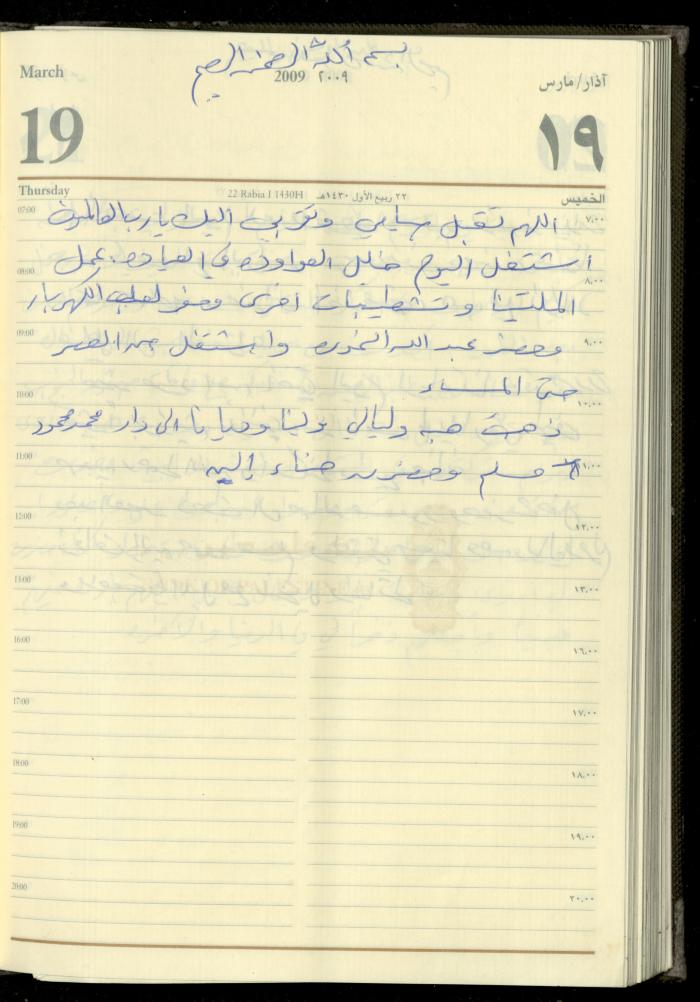 بسم الله الرحمن الرحيم
March
2009 ٢٠٠٩
آذار/مارس
19
١٩
Thursday
22 Rabia I 1430H
٢٢ ربيع الأول ١٤٣٠هـ
الخميس
07:00 ٧،٠٠
اللهم تقبل مني وتوبي اليك يا رب العالمين
اشتغل اليوم خليل العواوده في العياده. عمل
08:00 ٨،٠٠
الملتينا وتشطيبات اخرى وحضر لعلي الكهربائي
09:00 ٩،٠٠
وحضر عبد الله واشتغل من العصر
حتى المساء
10:00 ١٠،٠٠
ذهبت هبه وليالي الى دار محمد محمود
11:00 ١١،٠٠
مسلم وحضرت هناء إلى
12:00 ١٢،٠٠
13:00 ١٣،٠٠
16:00 ١٦،٠٠
17:00 ١٧،٠٠
18:00 ١٨،٠٠
19:00 ١٩،٠٠
20:00 ٢٠،٠٠